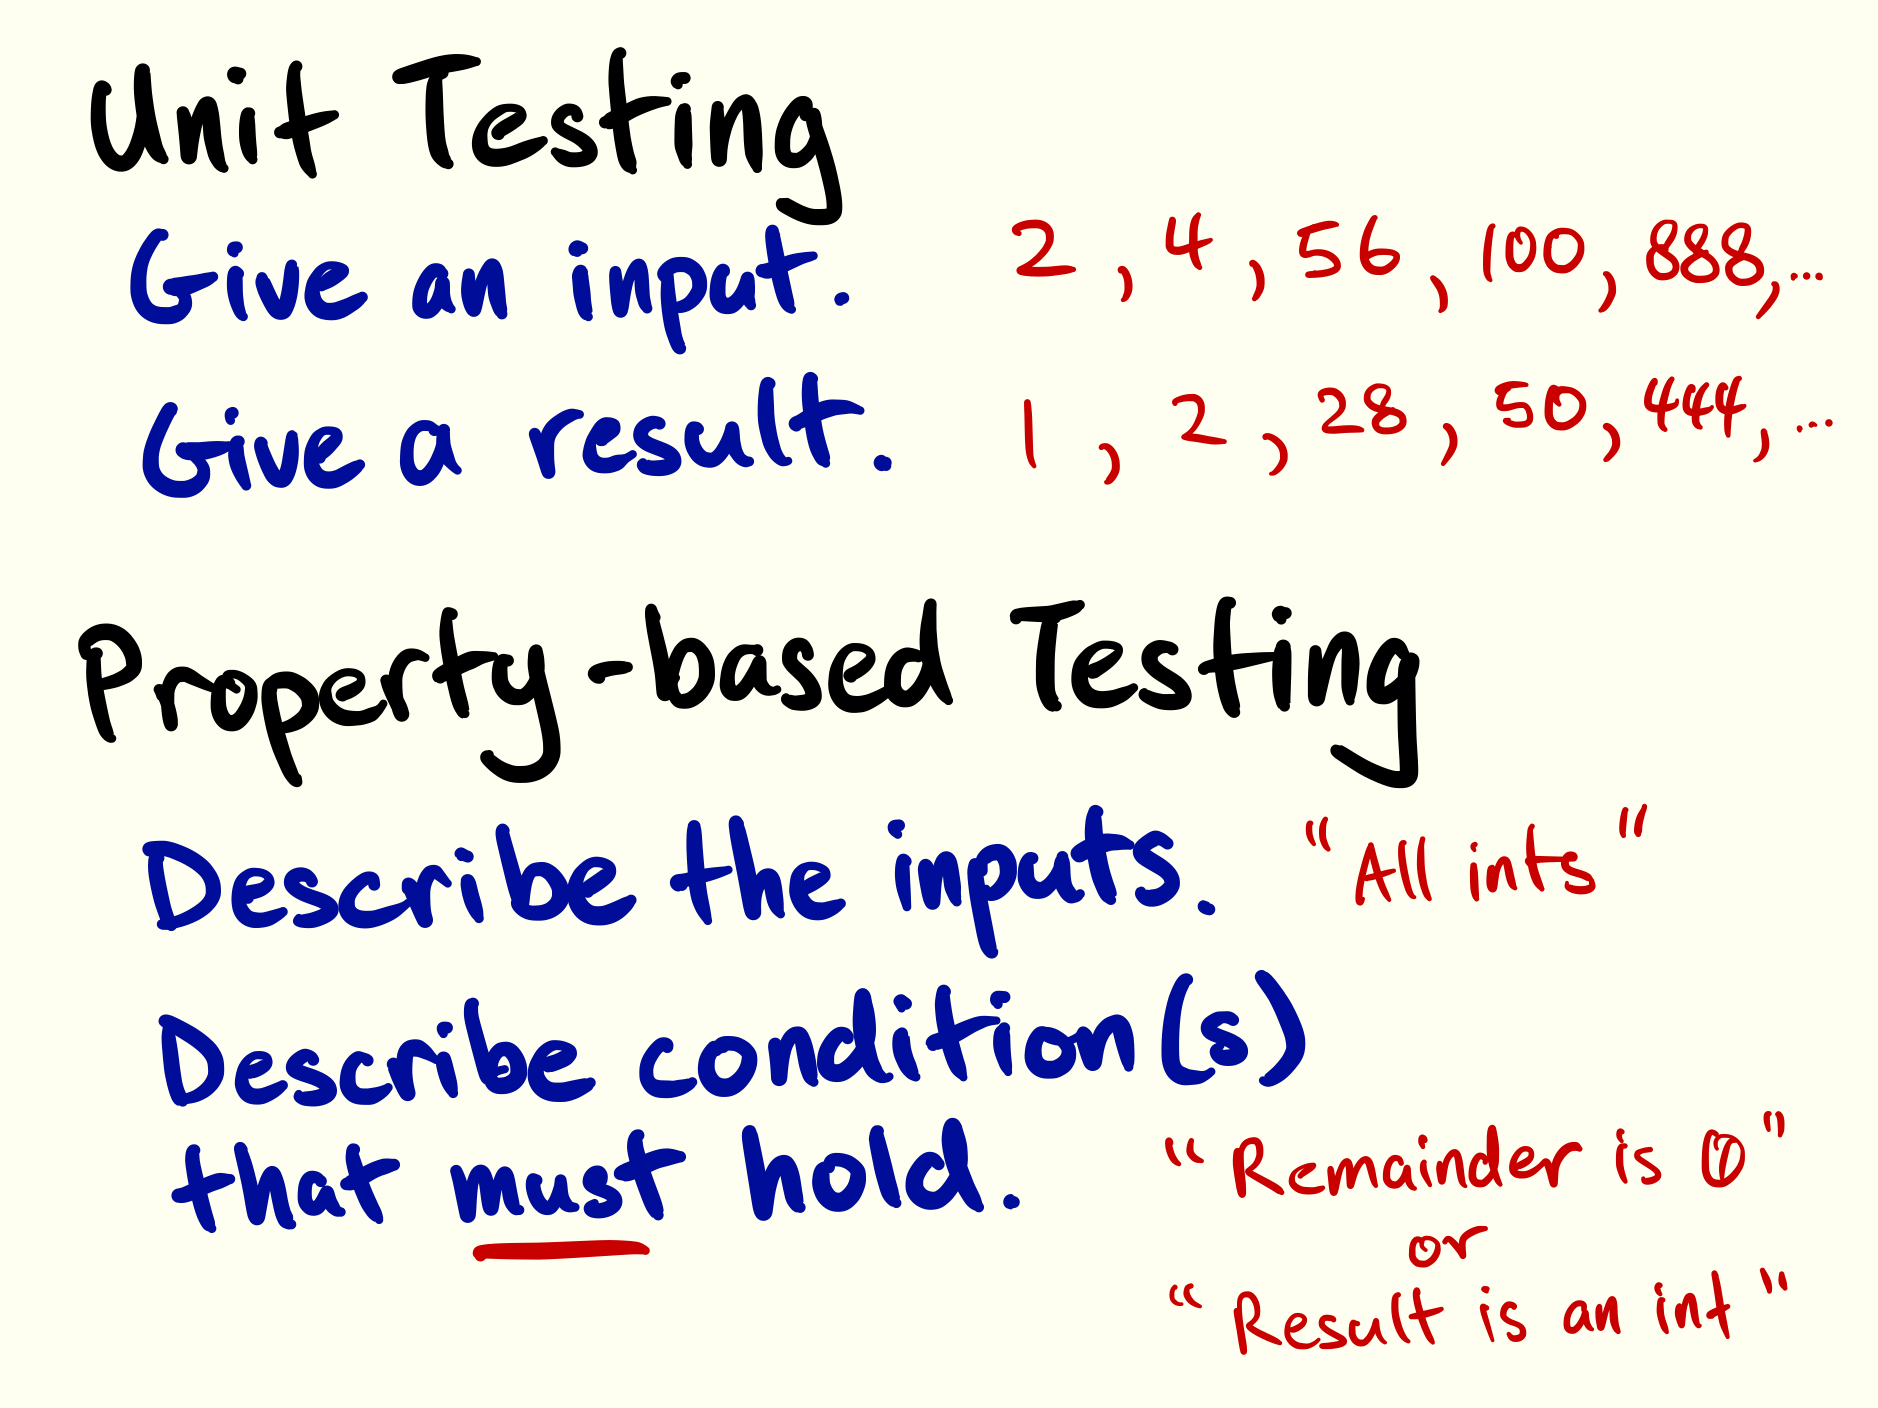 Unit Testing
Give an input. 2, 4, 56, 100, 888,...
Give a result. 1, 2, 28, 50, 444, ...
Property-based Testing
Describe the inputs. "All ints"
Describe condition(s)
that must hold. "Remainder is 0"
or
"Result is an int"